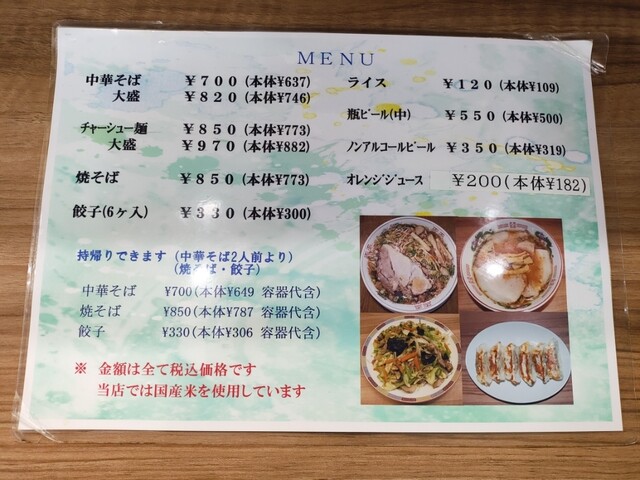 MENU
中華そば ￥７００(本体¥637)
大盛 ￥８２０(本体¥746)
チャーシュー麺 ￥８５０(本体¥773)
大盛 ￥９７０(本体¥882)
焼そば ￥８５０(本体¥773)
餃子(6ヶ入) ￥３３０(本体¥300)
ライス ￥１２０(本体¥109)
瓶ビール(中) ￥５５０(本体¥500)
ノンアルコールビール ￥３５０(本体¥319)
オレンジジュース ￥200(本体¥182)
持帰りできます (中華そば2人前より)
(焼そば・餃子)
中華そば ¥700(本体¥649 容器代含)
焼そば ¥850(本体¥787 容器代含)
餃子 ¥330(本体¥306 容器代含)
※ 金額は全て税込価格です
当店では国産米を使用しています